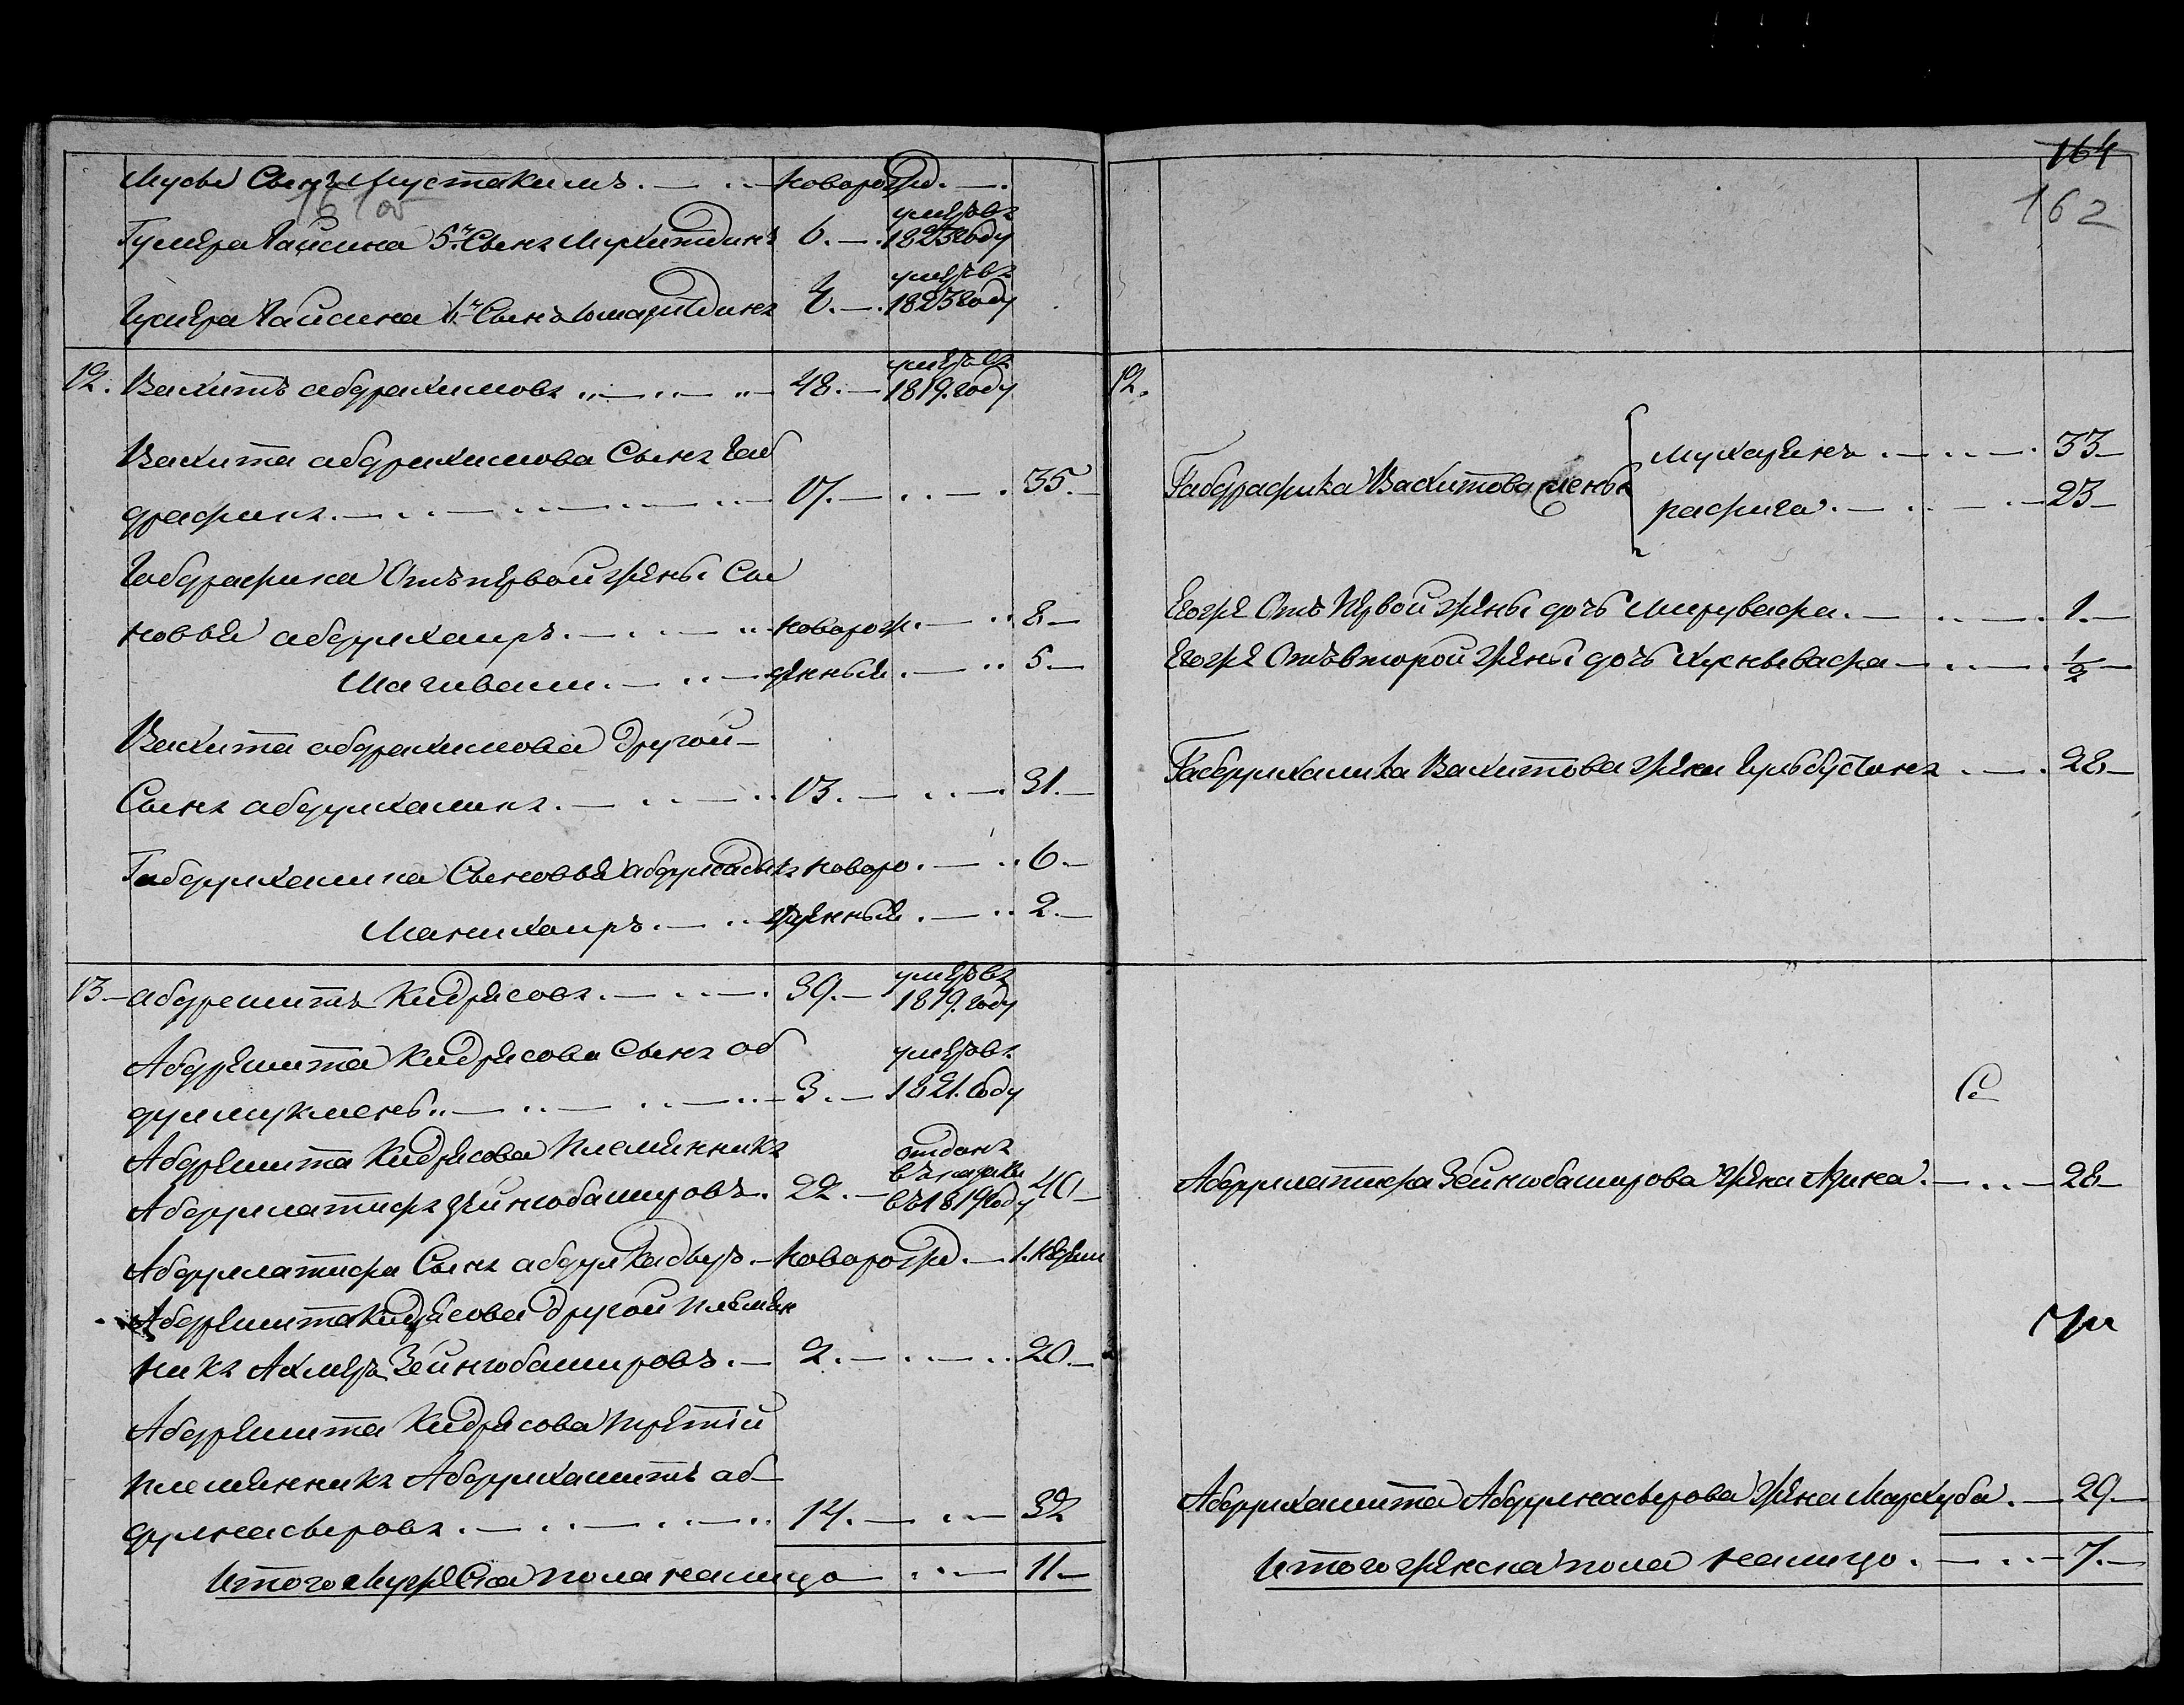 Мусы Сынъ Мустакимъ. новорожд.
Гумера Гайсина 5й Сынъ Мухитдинъ 6. умеръ въ 1823 году
Гумера Гайсина 6й Сынъ 4. умеръ въ 1823 году
12. Вахитъ абдрахимовъ 48. умеръ въ 1819. году
Вахита абдрахимова Сынъ Габ
драфикъ. 17. 35.
Габдрафика Отъ первой жены Сы
новья абдулхаиръ. новорож. 8
Шагивали. денныя. 5.
Вахита абдрахимова другой
Сынъ абдулхаликъ. 13. 31.
Габдулхалика Сыновья новоро 6.
жденныя. 2.
13 абдрешитъ Кидрясовъ. 39. умеръ въ 1819. году
Абдрешита Кидрясова Сынъ аб
дулмукменъ 3. умеръ въ 1821. году
Абдрешита Кидрясова племянникъ
Абдуллатифъ Зейнюбашировъ. 22. отданъ въ казаки въ 1819 году 40
Абдуллатифа Сынъ абдулкадыръ. Новорожд. 1. недели
Абдрешита Кидрясова другой племян
никъ Ахмеръ Зейнюбашировъ. 2. 20.
Абдрешита Кидрясова третій
племянникъ Абдулхашитъ аб
дулнасыровъ. 14. 32
Итого Мужеска пола налицо 11.
164
162
12.
Габдрафика Вахитова жены
33
рафига. 23
Его же Отъ первой жены дочь Мирувафа. 1.
Его же Отъ второй жены дочь Хуснывафа 1/2
Габдулхалика Вахитова жена Гульбустанъ 28
Абдуллатифа Зейнюбаширова жена 28
Абдулхашита Абдулнасырова жена Мархуба. 29.
Итого женска пола налицо. 7.